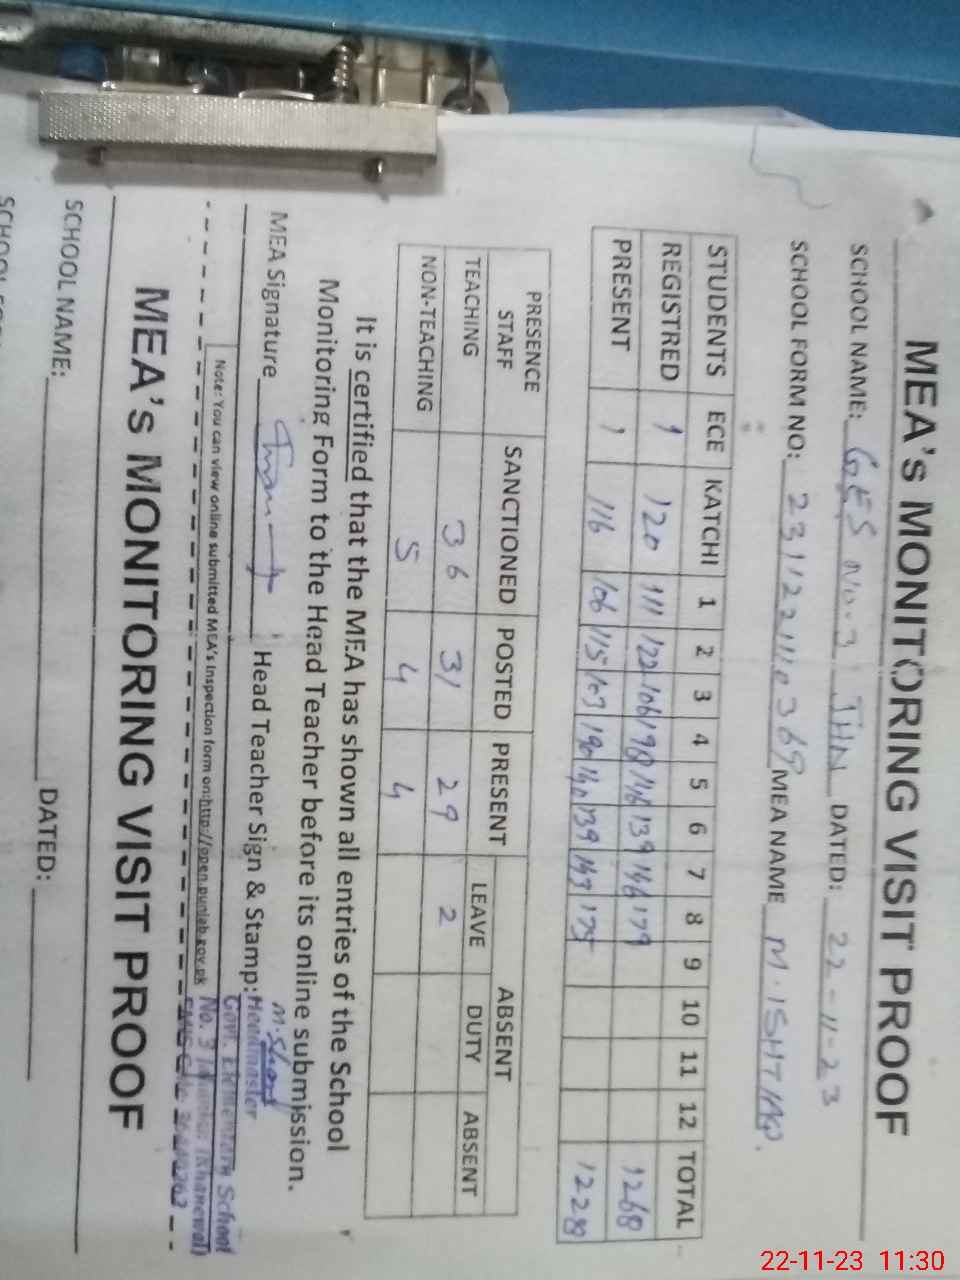 MEA's MONITORING VISIT PROOF
SCHOOL NAME: GES No. 3 JHN DATED: 22-11-23
SCHOOL FORM NO: MEA NAME M. ISHTIAQ.
STUDENTS ECE KATCHI 1 2 3 4 5 6 7 8 9 10 11 12 TOTAL
REGISTRED 120 111 122 106 198 146 139 146 179 1268
PRESENT 116 106 115 103 190 140 139 143 175 1228
PRESENCE STAFF SANCTIONED POSTED PRESENT ABSENT
LEAVE DUTY ABSENT
TEACHING 36 31 29 2
NON-TEACHING 5 4 4
It is certified that the MEA has shown all entries of the School
Monitoring Form to the Head Teacher before its online submission.
MEA Signature Head Teacher Sign & Stamp: Headmaster
Govt. Elementary School
No. 3 (Khanewal)
Note: You can view online submitted MEA's Inspection form on:http://open.punjab.gov.pk
MEA's MONITORING VISIT PROOF
SCHOOL NAME: DATED:
SCHOOL
22-11-23 11:30